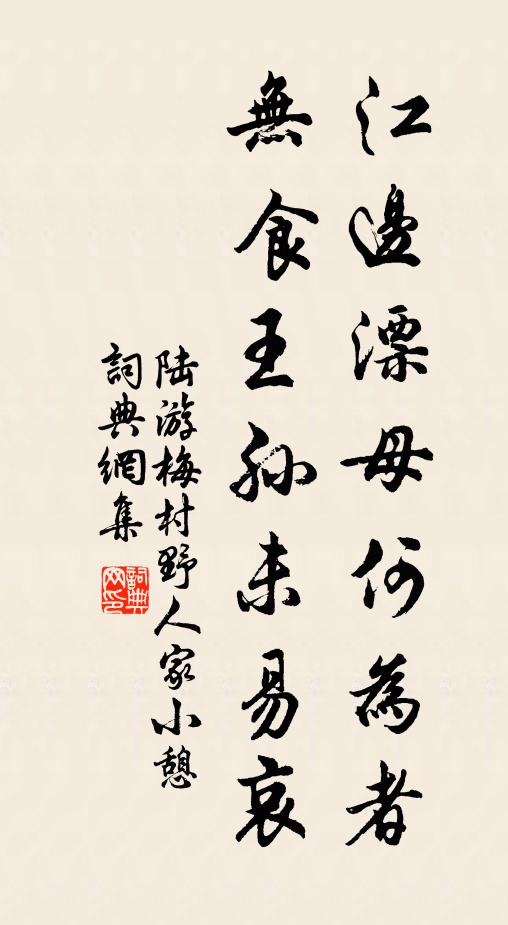 江邊漂母何為者
無食王孫未易哀
陸游梅村野人家小憩
詞典網集
詞典网印